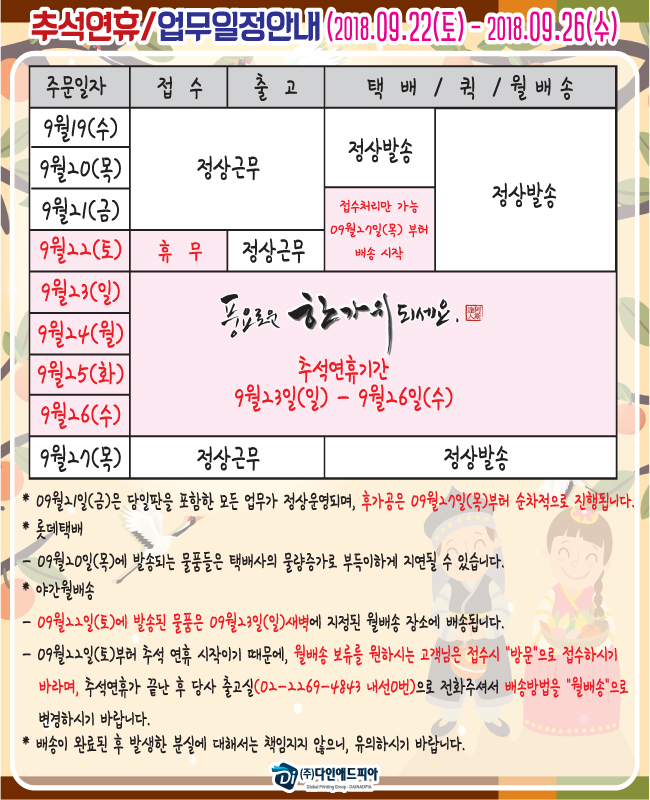 추석연휴/업무일정안내 (2018.09.22(토) - 2018.09.26(수)
주문일자 접 수 출 고 택 배 / 퀵 / 월배송
9월19(수)
9월20(목) 정상근무 정상발송
9월21(금) 정상발송
접수처리만 가능
09월27일(목) 부터
배송 시작
9월22(토) 휴 무 정상근무
9월23(일)
9월24(월)
9월25(화)
9월26(수)
풍요로운 한가위 되세요.
추석연휴기간
9월23일(일) - 9월26일(수)
9월27(목) 정상근무 정상발송
* 09월21일(금)은 당일판을 포함한 모든 업무가 정상운영되며, 후가공은 09월27일(목)부터 순차적으로 진행됩니다.
* 롯데택배
- 09월20일(목)에 발송되는 물품들은 택배사의 물량증가로 부득이하게 지연될 수 있습니다.
* 야간월배송
- 09월22일(토)에 발송된 물품은 09월23일(일)새벽에 지정된 월배송 장소에 배송됩니다.
- 09월22일(토)부터 추석 연휴 시작이기 때문에, 월배송 보류를 원하시는 고객님은 접수시 "방문"으로 접수하시기
바라며, 추석연휴가 끝난 후 당사 출고실(02-2269-4843 내선0번)으로 전화주셔서 배송방법을 "월배송"으로
변경하시기 바랍니다.
* 배송이 완료된 후 발생한 분실에 대해서는 책임지지 않으니, 유의하시기 바랍니다.
(주)다인애드피아
Global Printing Group - DAINADPIA